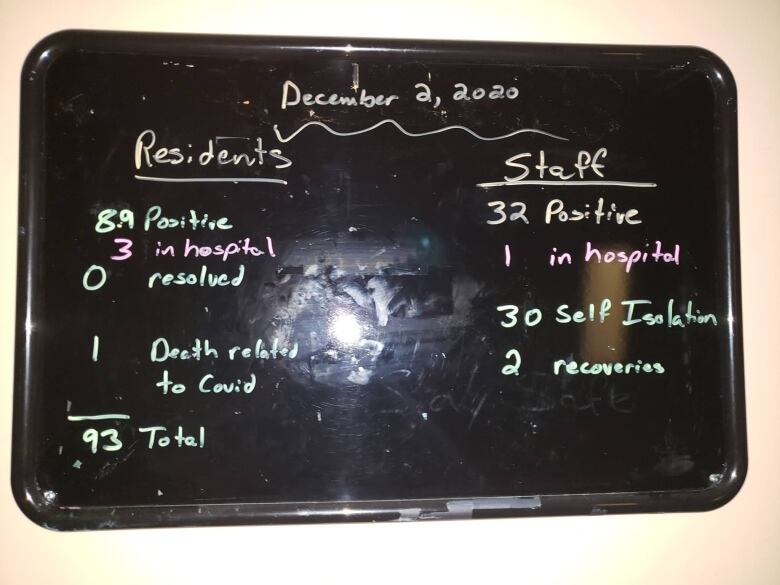 December 2, 2020
Residents
89 Positive
3 in hospital
0 resolved
1 Death related
to Covid
93 Total
Staff
32 Positive
1 in hospital
30 Self Isolation
2 recoveries